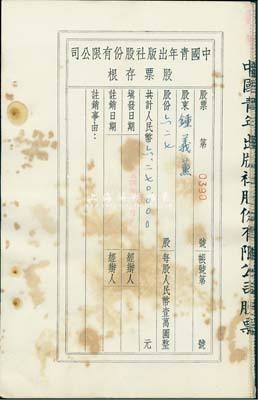 中國青年出版社股份有限公司
股票存根
股票 第 0390 號 帳號第 號
股東 鍾義薰
股份 六二七 股 每股人民幣壹萬圓整
共計人民幣 六、二七〇、〇〇〇 元
填發日期 經辦人
註銷日期 經辦人
註銷事由：
中國青年出版社股份有限公司股票